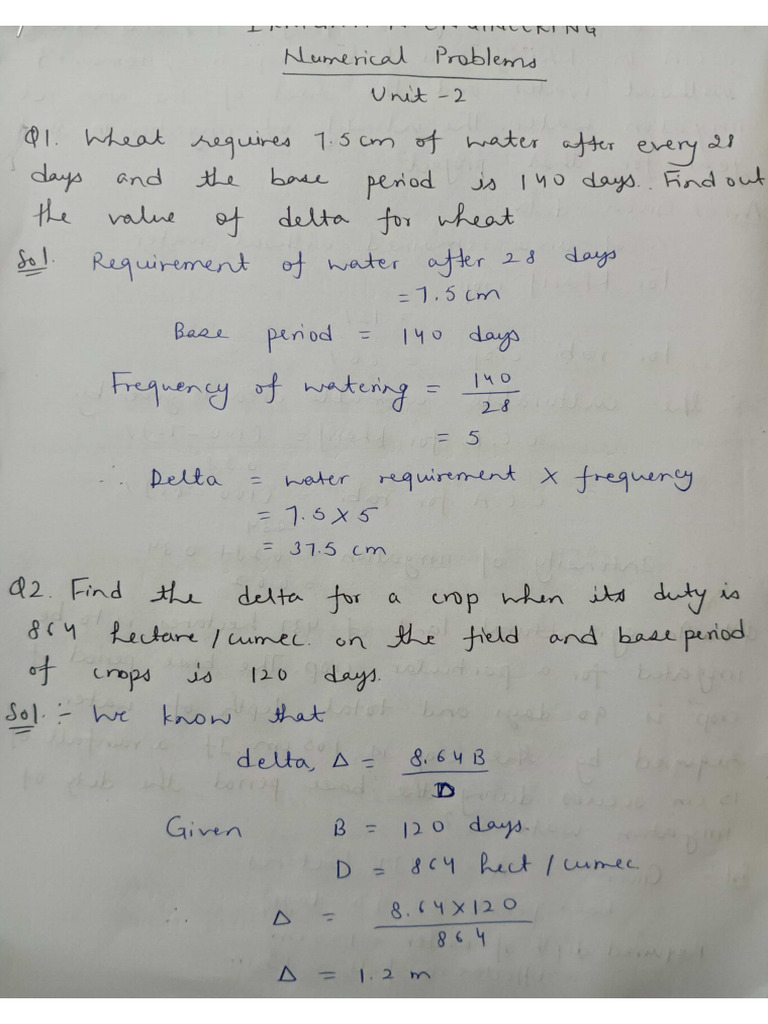 ENGINEERING
Numerical Problems
Unit -2
Q1. Wheat requires 7.5 cm of water after every 28
days and the base period is 140 days. Find out
the value of delta for wheat
Sol. Requirement of water after 28 days
= 7.5 cm
Base period = 140 days
Frequency of watering = 140/28
= 5
∴ Delta = water requirement x frequency
= 7.5 x 5
= 37.5 cm
Q2. Find the delta for a crop when its duty is
864 hectare/cumec. on the field and base period
of crops is 120 days.
Sol. :- We know that
delta, Δ = 8.64 B / D
Given B = 120 days.
D = 864 hect / cumec
∴ Δ = 8.64 x 120 / 864
Δ = 1.2 m